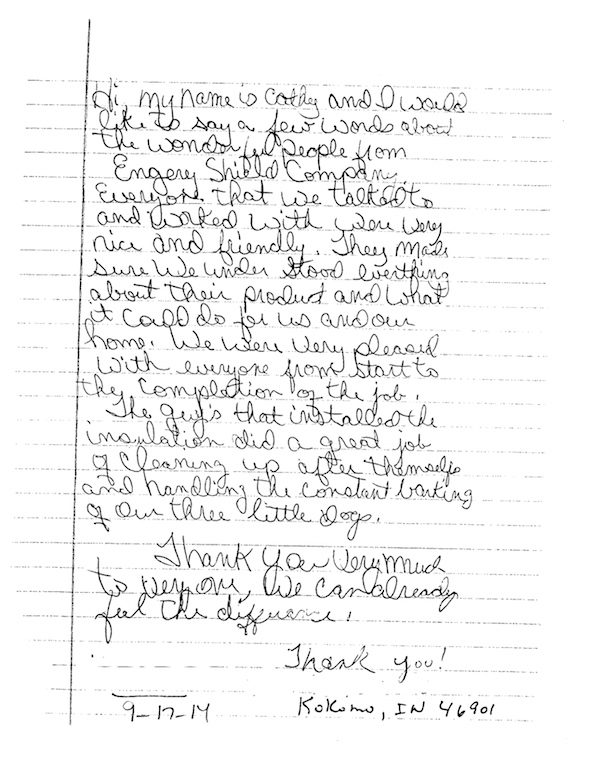 Hi, my name is Cathy and I would
like to say a few words about
the wonderful people from
Engery Shield Company.
Everyone that we talked to
and worked with were very
nice and friendly. They made
sure we under stood everthing
about their product and what
it could do for us and our
home. We were very pleased
with everyone from start to
the completion of the job.
The guy's that installed the
insulation did a great job
of cleaning up after themselfs
and handling the constant barking
of our three little dogs.
Thank you very much
to veryone, we can already
feel the differance!
Thank you!
9-17-14 Kokomo, IN 46901